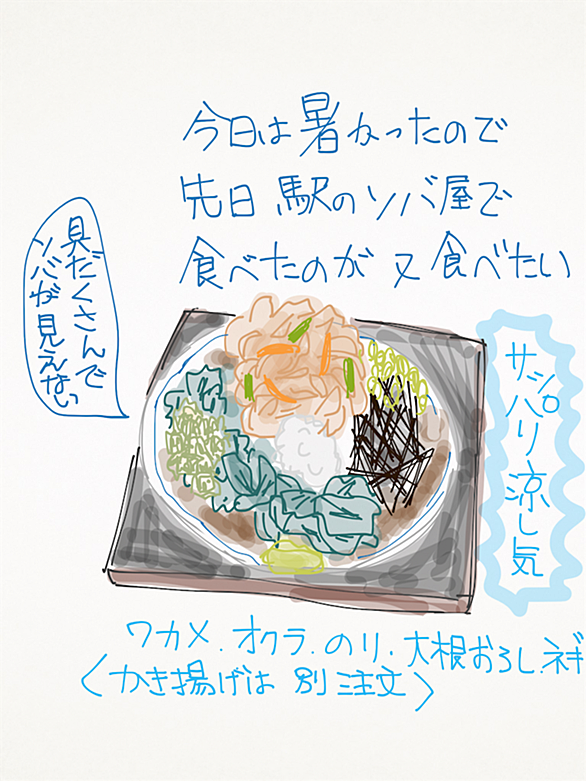 今日は暑かったので
先日 駅のソバ屋で
食べたのが 又 食べたい
具だくさんで
ソバが見えない
サッパリ涼し気
ワカメ.オクラ.のり.大根おろし.ネギ
(かき揚げは 別注文)